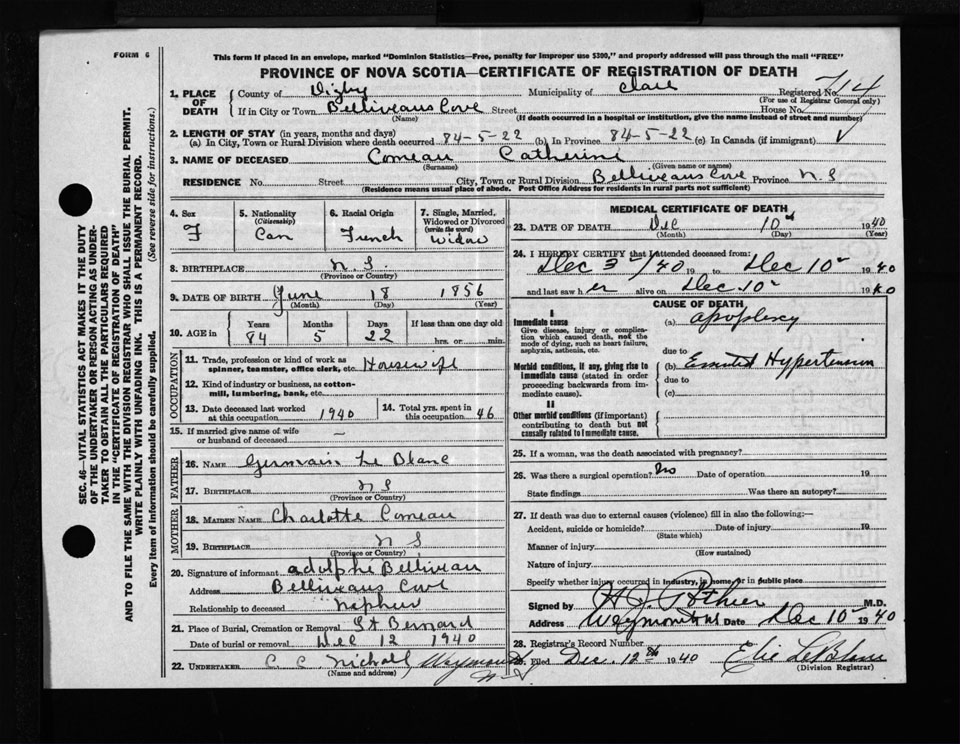 FORM 6
This form if placed in an envelope, marked "Dominion Statistics—Free, penalty for improper use $300," and properly addressed will pass through the mail "FREE"
PROVINCE OF NOVA SCOTIA—CERTIFICATE OF REGISTRATION OF DEATH
1. PLACE OF DEATH County of Digby Municipality of Clare Registered No. 714
(For use of Registrar General only)
If in City or Town Belliveaus Cove Street House No.
(Name) (If death occurred in a hospital or institution, give the name instead of street and number)
2. LENGTH OF STAY (in years, months and days)
(a) In City, Town or Rural Division where death occurred 84-5-22 (b) In Province 84-5-22 (c) In Canada (if immigrant)
3. NAME OF DECEASED Comeau Catherine
(Surname) (Given name or names)
RESIDENCE No. Street City, Town or Rural Division Belliveaus Cove Province N.S
(Residence means usual place of abode. Post Office Address for residents in rural parts not sufficient)
4. Sex F
5. Nationality (Citizenship) Can
6. Racial Origin French
7. Single, Married, Widowed or Divorced (write the word) Widow
8. BIRTHPLACE N. S
(Province or Country)
9. DATE OF BIRTH June 18 1856
(Month) (Day) (Year)
10. AGE in Years 84 Months 5 Days 22 If less than one day old hrs. or min.
OCCUPATION
11. Trade, profession or kind of work as spinner, teamster, office clerk, etc. Housewife
12. Kind of industry or business, as cotton-mill, lumbering, bank, etc.
13. Date deceased last worked at this occupation 1940
14. Total yrs. spent in this occupation 46
15. If married give name of wife or husband of deceased —
FATHER
16. NAME Germain Le Blanc
17. BIRTHPLACE N S
(Province or Country)
MOTHER
18. MAIDEN NAME Charlotte Comeau
19. BIRTHPLACE N S
(Province or Country)
20. Signature of informant Adolphe Belliveau
Address Belliveaus Cove
Relationship to deceased Nephew
21. Place of Burial, Cremation or Removal St Bernard
Date of burial or removal Dec 12 1940
22. UNDERTAKER C. C. Nichall Weymouth N-S
(Name and address)
MEDICAL CERTIFICATE OF DEATH
23. DATE OF DEATH Dec 10 1940
(Month) (Day) (Year)
24. I HEREBY CERTIFY that I attended deceased from:
Dec 3 /40 19 to Dec 10 1940
and last saw her alive on Dec 10 1940
CAUSE OF DEATH
I
Immediate cause
Give disease, injury or complication which caused death, not the mode of dying, such as heart failure, asphyxia, asthenia, etc.
(a) apoplexy
due to
Morbid conditions, if any, giving rise to immediate cause (stated in order proceeding backwards from immediate cause).
(b) Hypertension
due to
(c)
II
Other morbid conditions (if important) contributing to death but not causally related to immediate cause.
25. If a woman, was the death associated with pregnancy?
26. Was there a surgical operation? No Date of operation 19
State findings Was there an autopsy?
27. If death was due to external causes (violence) fill in also the following:—
Accident, suicide or homicide? Date of injury 19
(State which)
Manner of injury
(How sustained)
Nature of injury
Specify whether injury occurred in industry, in home, or in public place
Signed by H. J. Pothier M.D.
Address Weymouth Date Dec 10 1940
28. Registrar's Record Number
29. Filed Dec. 12th 1940 Elie LeBlanc
(Division Registrar)
SEC. 46—VITAL STATISTICS ACT MAKES IT THE DUTY
OF THE UNDERTAKER OR PERSON ACTING AS UNDER-
TAKER TO OBTAIN ALL THE PARTICULARS REQUIRED
IN THE "CERTIFICATE OF REGISTRATION OF DEATH"
AND TO FILE THE SAME WITH THE DIVISION REGISTRAR WHO SHALL ISSUE THE BURIAL PERMIT.
WRITE PLAINLY WITH UNFADING INK. THIS IS A PERMANENT RECORD.
Every item of information should be carefully supplied. (See reverse side for instructions.)